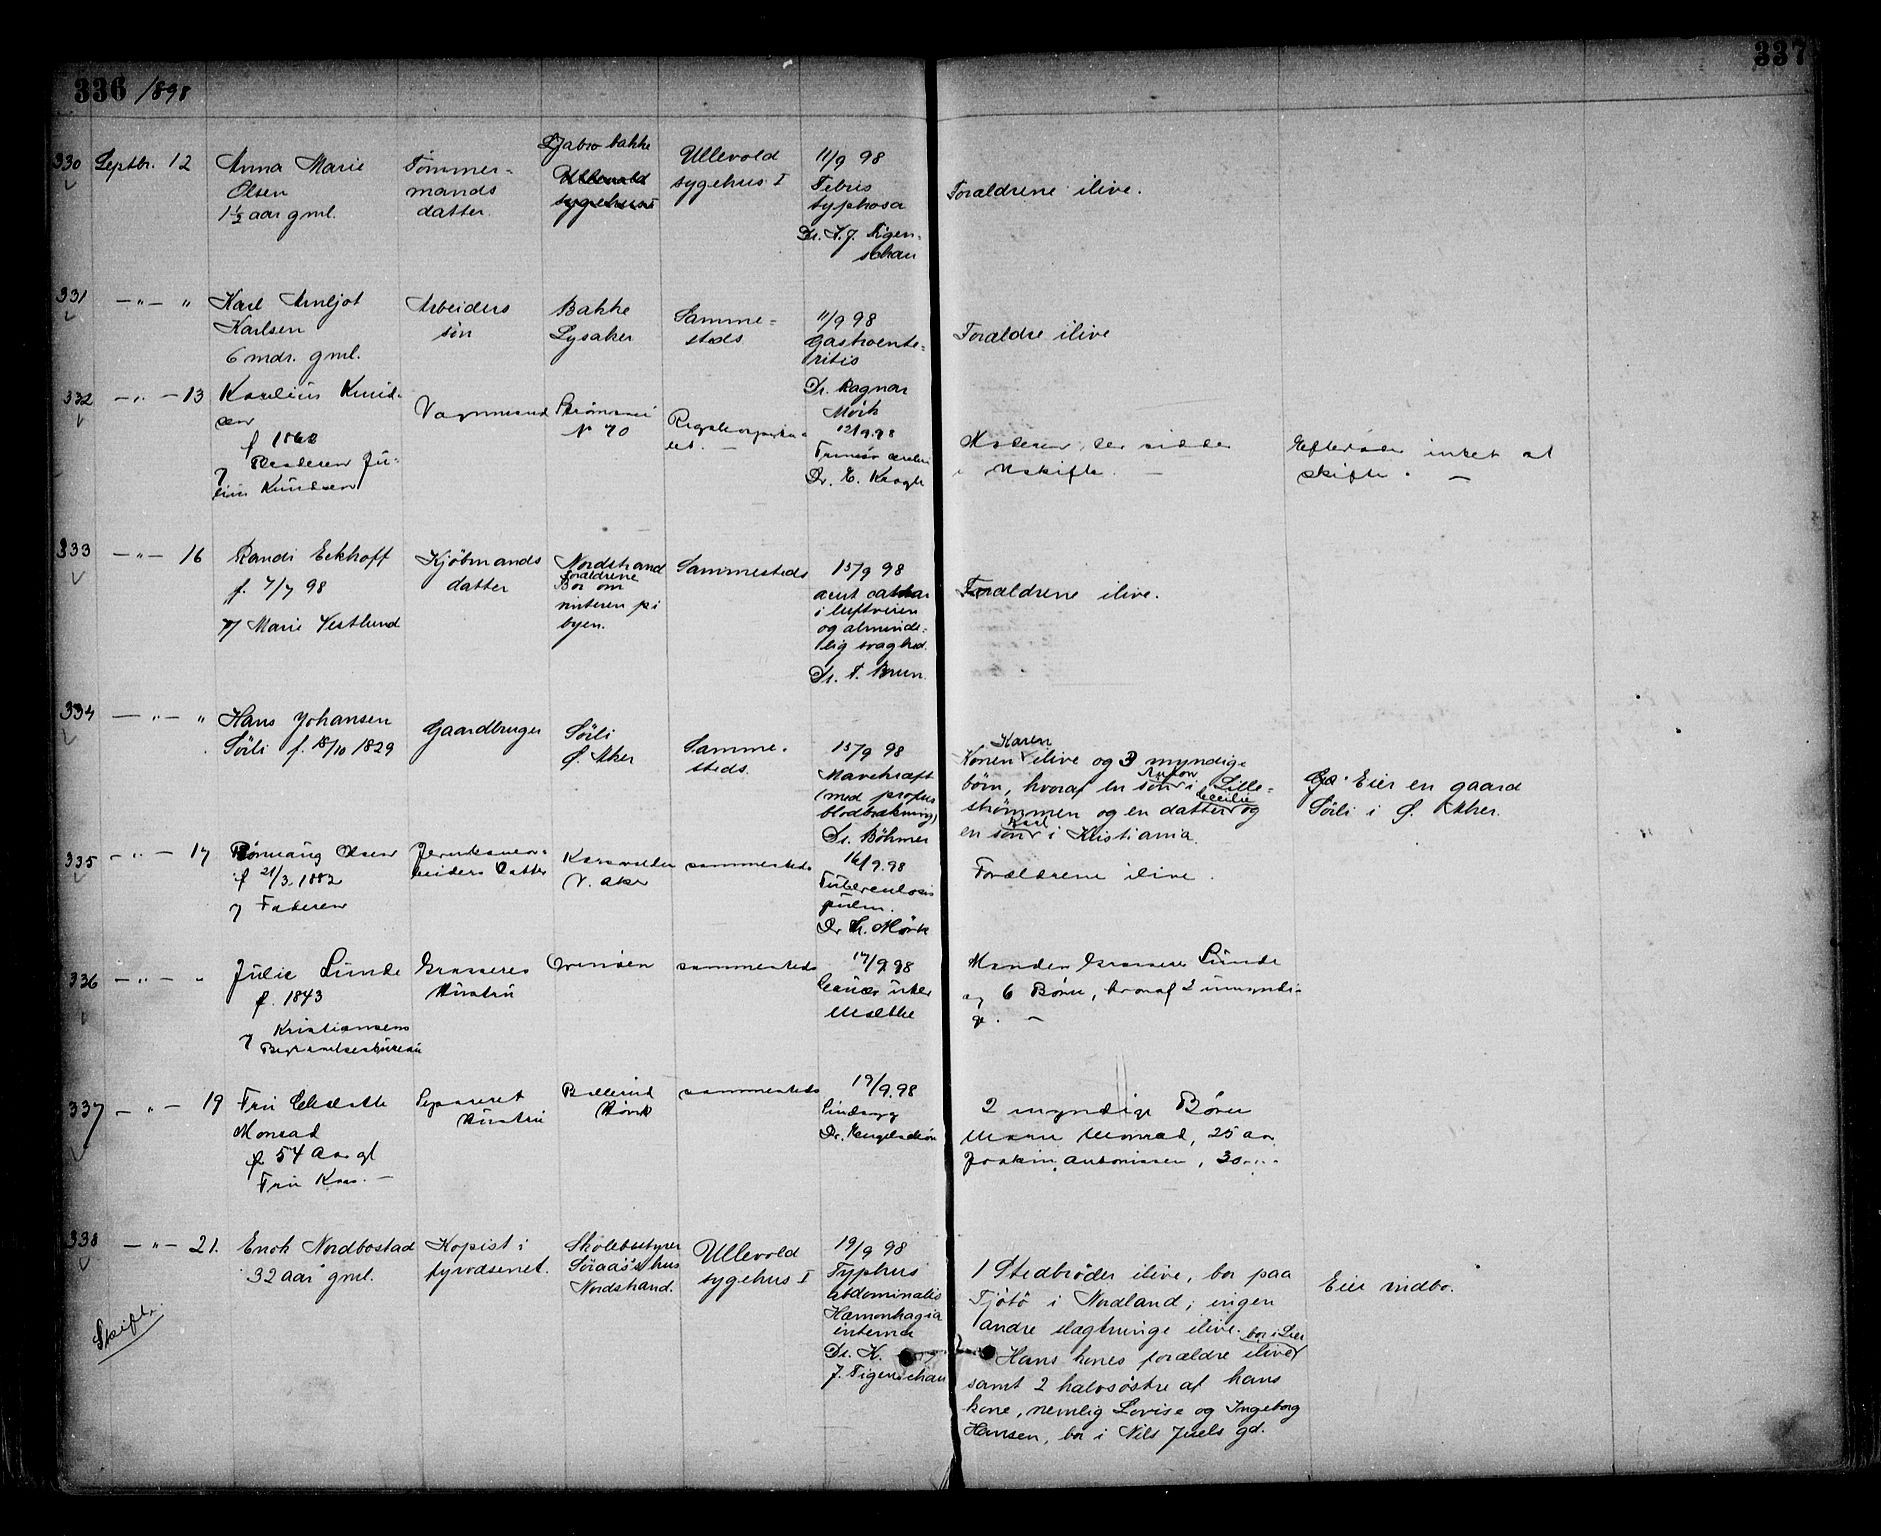 336 /898
337
330 Septbr. 12
Anna Marie
Olsen
1½ aar gml.
Tømmer-
mands
datter.
Ljabro bakke
Ullevold
sygehus
Ullevold
sygehus I
11/9 98
Febris
typhosa
Dr. K. J. Figen-
schau
Forældrene ilive.
331 — " — "
Karl Arnljot
Karlsen
6 mdr. gml.
Arbeiders
søn
Bakke
Lysaker
Samme-
steds
11/9 98
Gastroente-
ritis
Dr. Ragnar
Mörk
Forældre ilive
332 — " — 13
Karelius Knud-
sen
f 1868
Broderen Ju-
lius Knudsen
Vognmand
N 70
12/9.98
Dr. E. Kragh
Moderen, der sidder
i Uskifte. —
Efterlader intet at
skifte. —
333 — " — 16
Randi Eckhoff
f. 7/7 98
Marie Vestlund
Kjöbmands
datter
Nordstrand
Forældrene
Bor om
vinteren på
byen.
Sammesteds
15/9 98
acut catthar
i luftveien
og alminde-
lig svaghed.
Dr. T. Brun.
Forældrene ilive.
334 — " — "
Hans Johansen
Sörli f. 18/10 1829
Gaardbruger
Sörli
Ø. Aker
Samme-
steds.
15/9 98
Mavekræft
(med profus
blodbrækning)
Dr. Böhmer
Karen
Konen ilive og 3 myndige
börn, hvoraf en sön Anton i Lille-
strömmen og en datter Cecilie og
en sön Karl i Kristiania.
Eier en gaard
Sörli i Ø. Aker.
335 — " — 17
Rønnaug Olsen
f 21/3 1882
Faderen
Jernbanear-
beiders Datter
V. Aker
sammesteds
16/9.98
Tuberculosis
pulm.
Dr R. Mørk
Forældrene ilive.
336 — " — "
Julie Lunde
f. 1843
Kristiansens
Begravelsesbureau
Grosseres
Hustru
Grensen
sammesteds
17/9 98
Cancer uteri
Malthe
Manden Grosserer Lunde
og 6 Børn, hvoraf 2 umyndi-
ge. —
337 — " — 19
Fru
Monrad
f. 54 Aar gl
Fru
Separeret
Hustru
Ballerud
sammesteds
19/9.98
Dr. Engelschiøn
2 myndige Børn
Monrad, 25 aar
Joakim Antonissen, 30 — " —
338 — " — 21.
Enok Nordbostad
32 aar gml.
Skifte.
Kopist i
fyrvæsenet.
Skolebestyrer
Søraas's hus
Nordstrand.
Ullevold
sygehus I
19/9 98
Typhus
abdominalis
Hæmorrhagia
interna
Dr. K.
J. Figenschau
1 Stedbroder ilive, bor paa
Tjötö i Nordland; ingen
andre slægtninge ilive.
Hans kones forældre ilive bor i Lier
samt 2 halvsöstre af hans
kone, nemlig Lovise og Ingeborg
Hansen, bor i Nils Juels gd.
Eier indbo.